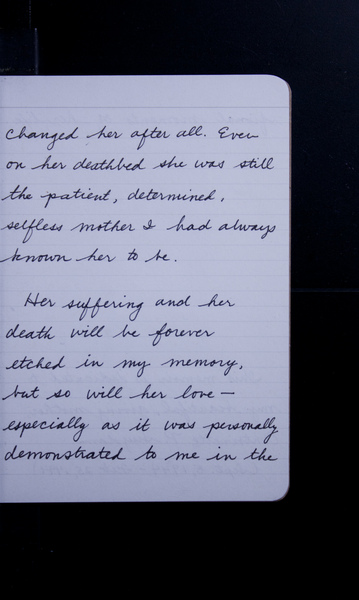 changed her after all. Even
on her deathbed she was still
the patient, determined,
selfless mother I had always
known her to be.
Her suffering and her
death will be forever
etched in my memory,
but so will her love—
especially as it was personally
demonstrated to me in the